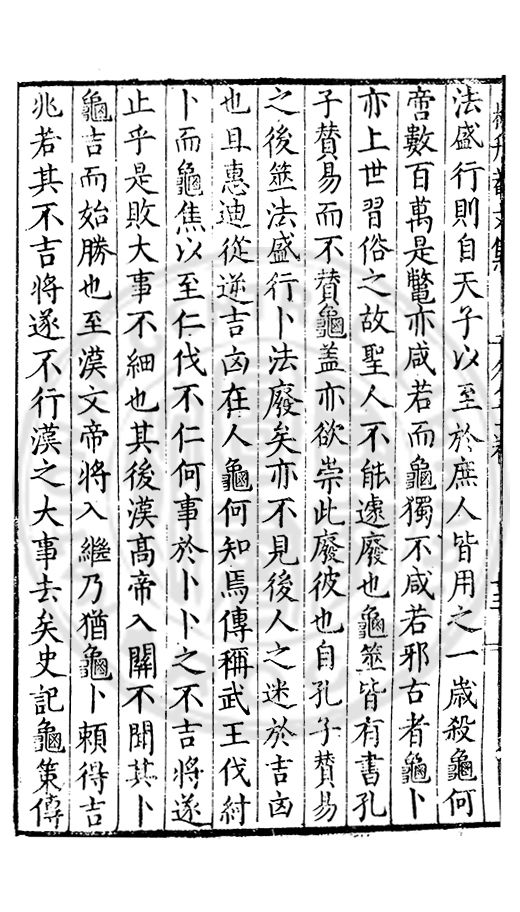 法盛行則自天子以至於庶人皆用之一歲殺龜何
啻數百萬是鼈亦咸若而龜獨不咸若邪古者龜卜
亦上世習俗之故聖人不能遽廢也龜筮皆有書孔
子賛易而不賛龜盖亦欲崇此廢彼也自孔子賛易
之後筮法盛行卜法廢矣亦不見後人之迷於吉凶
也且惠迪從逆吉凶在人龜何知焉傳稱武王伐紂
卜而龜焦以至仁伐不仁何事於卜卜之不吉將遂
止乎是敗大事不細也其後漢高帝入關不聞其卜
龜吉而始勝也至漢文帝將入繼乃猶龜卜頼得吉
兆若其不吉將遂不行漢之大事去矣史記龜策傳